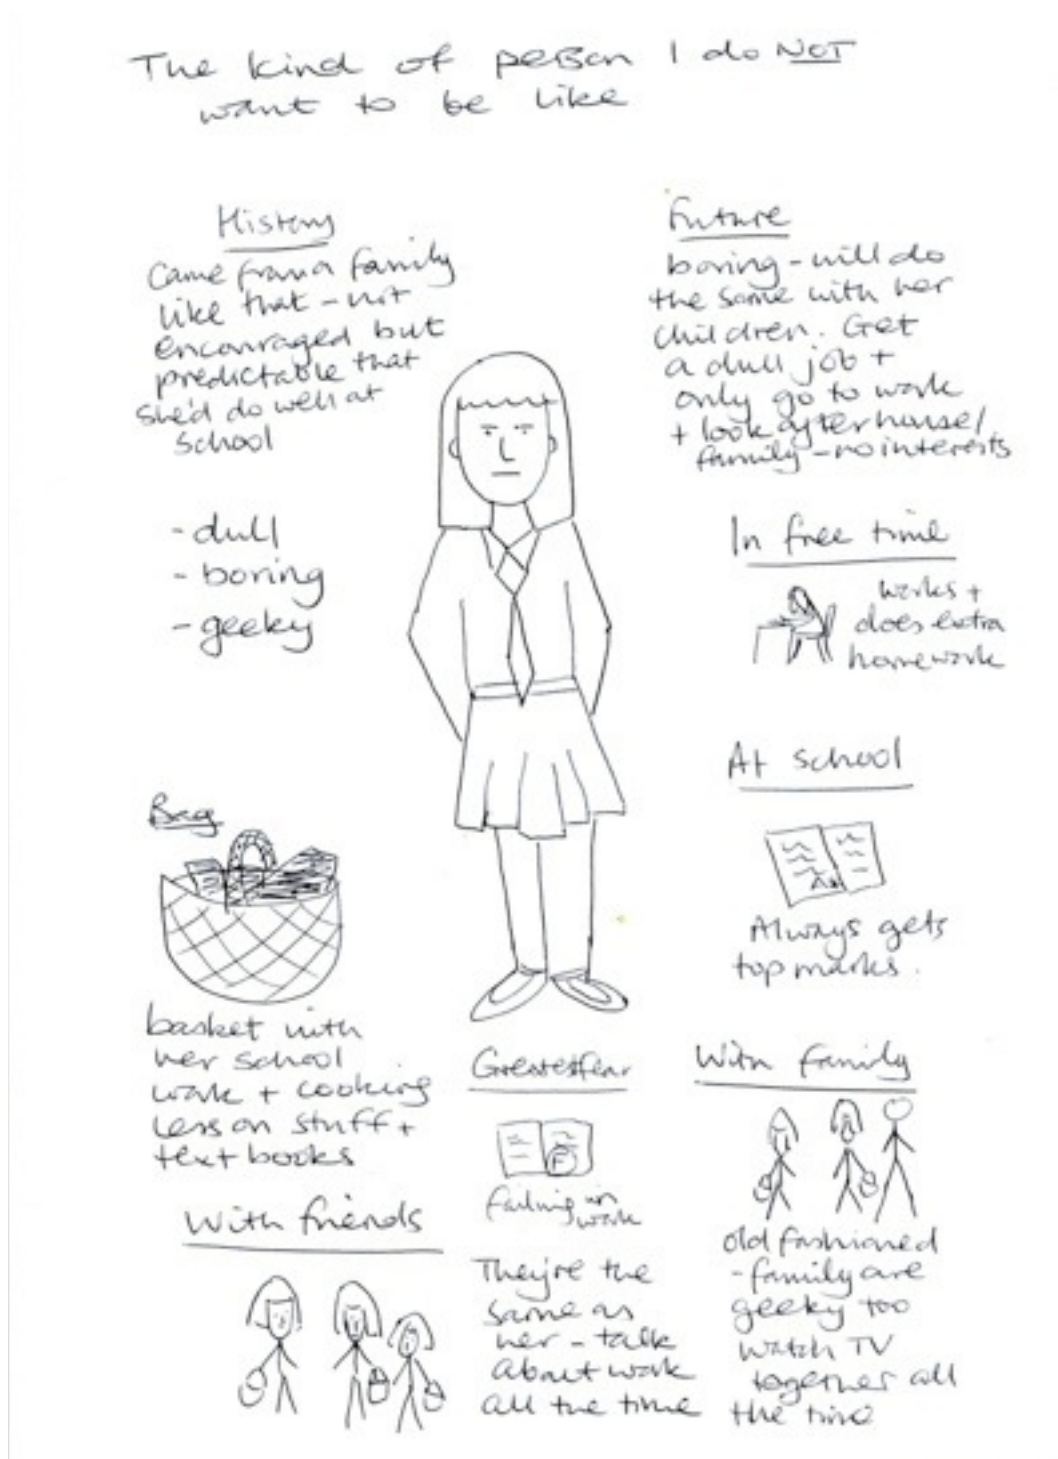 The kind of person I do NOT
want to be like
History
Came from a family
like that - not
encouraged but
predictable that
she'd do well at
school
- dull
- boring
- geeky
Bag
basket with
her school
work + cooking
lesson stuff +
text books
With friends
They're the
same as
her - talk
about work
all the time
Future
boring - will do
the same with her
children. Get
a dull job +
only go to work
+ look after house/
family - no interests
In free time
works +
does extra
homework
At school
A*
Always gets
top marks.
Greatest fear
F
failing in
work
With family
old fashioned
- family are
geeky too
watch TV
together all
the time